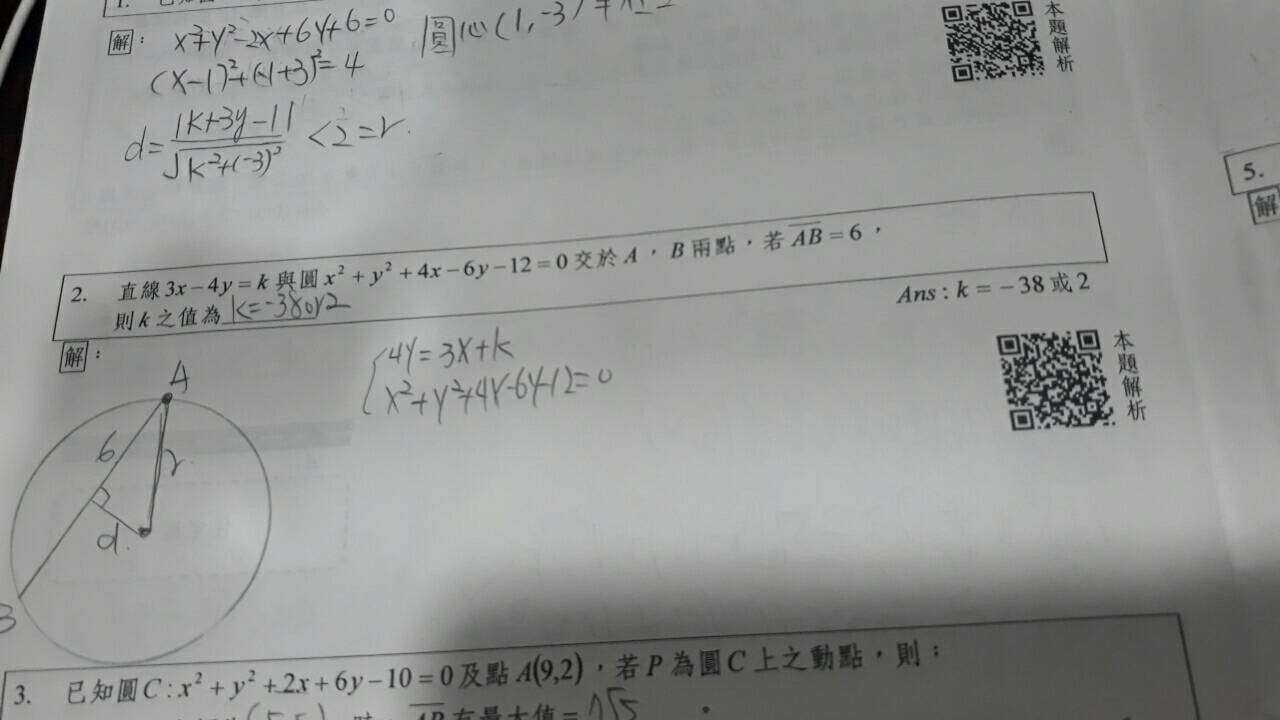 1. 已知圓
解：
x²+y²-2x+6y+6=0 圓心(1,-3)
(x-1)²+(y+3)²=4
d=|k+3y-1|/√k²+(-3)² <2=r
本題解析
2. 直線 3x-4y=k 與圓 x²+y²+4x-6y-12=0 交於 A，B 兩點，若 AB=6，
則 k 之值為 k=-38or2
Ans : k = -38 或 2
解：
{4y=3x+k
x²+y²+4x-6y-12=0
本題解析
A
6
r
d
B
3. 已知圓 C : x²+y²+2x+6y-10=0 及點 A(9,2)，若 P 為圓 C 上之動點，則：
時，AP 有最大值=
5.
解